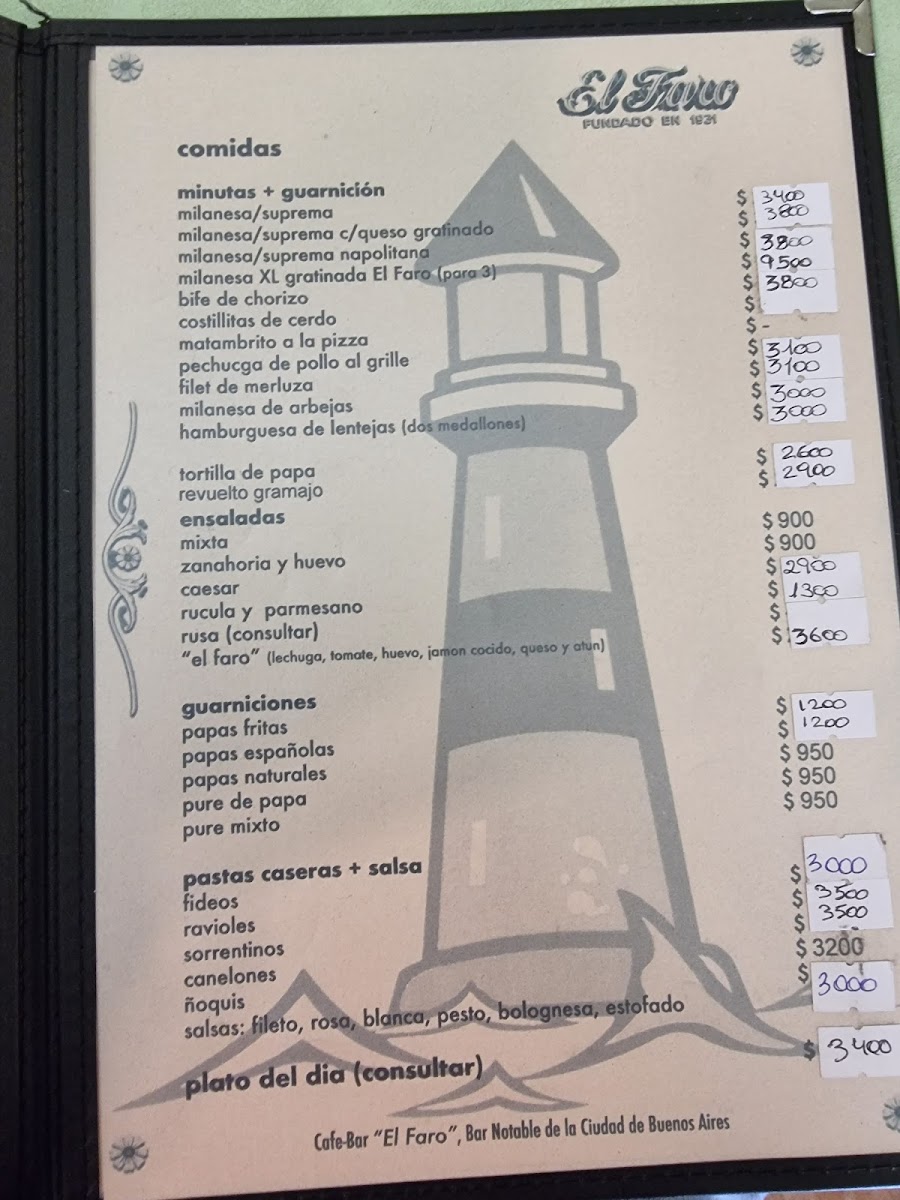 El Faro
FUNDADO EN 1931
comidas
minutas + guarnición
milanesa/suprema $ 3400
milanesa/suprema c/queso gratinado $ 3600
milanesa/suprema napolitana $ 3800
milanesa XL gratinada El Faro (para 3) $ 9500
bife de chorizo $ 3800
costillitas de cerdo $
matambrito a la pizza $ -
pechucga de pollo al grille $ 3100
filet de merluza $ 3100
milanesa de arbejas $ 3000
hamburguesa de lentejas (dos medallones) $ 3000
tortilla de papa $ 2600
revuelto gramajo $ 2900
ensaladas
mixta $ 900
zanahoria y huevo $ 900
caesar $ 2900
rucula y parmesano $ 1300
rusa (consultar) $
"el faro" (lechuga, tomate, huevo, jamon cocido, queso y atun) $ 3600
guarniciones
papas fritas $ 1200
papas españolas $ 1200
papas naturales $ 950
pure de papa $ 950
pure mixto $ 950
pastas caseras + salsa
fideos $ 3000
ravioles $ 3500
sorrentinos $ 3500
canelones $ 3200
ñoquis $ 3000
salsas: fileto, rosa, blanca, pesto, bolognesa, estofado
plato del dia (consultar) $ 3400
Cafe-Bar "El Faro", Bar Notable de la Ciudad de Buenos Aires